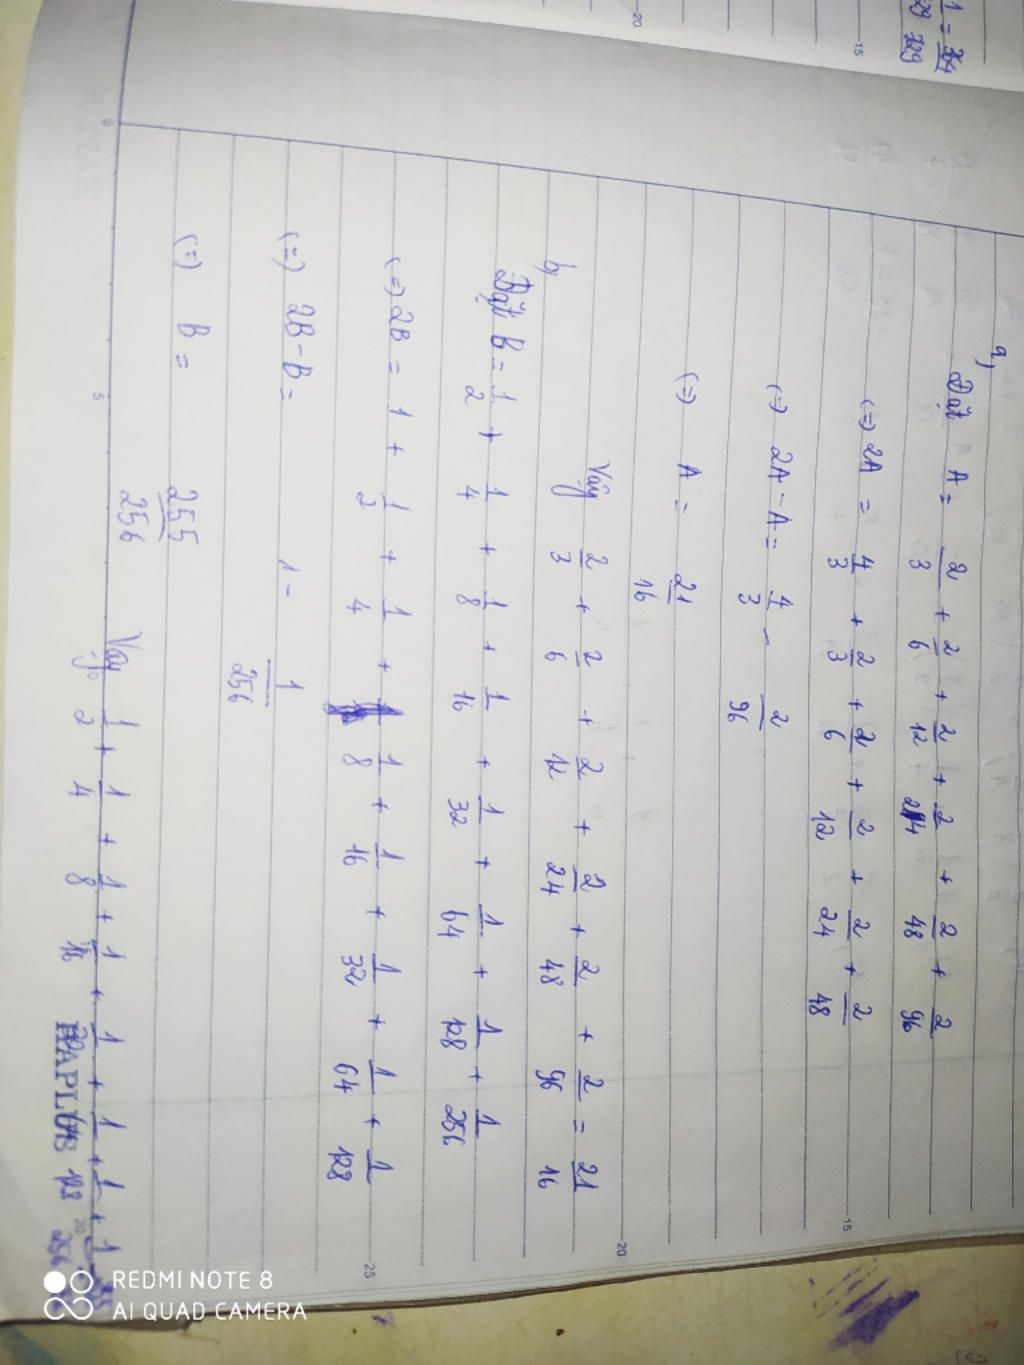 1 = 364
729 729
a,
Đặt A = 2/3 + 2/6 + 2/12 + 2/24 + 2/48 + 2/96
(=) 2A = 4/3 + 2/3 + 2/6 + 2/12 + 2/24 + 2/48
(=) 2A - A = 4/3 - 2/96
(=) A = 21/16
Vậy 2/3 + 2/6 + 2/12 + 2/24 + 2/48 + 2/96 = 21/16
b,
Đặt B = 1/2 + 1/4 + 1/8 + 1/16 + 1/32 + 1/64 + 1/128 + 1/256
(=) 2B = 1 + 1/2 + 1/4 + 1/8 + 1/16 + 1/32 + 1/64 + 1/128
(=) 2B - B = 1 - 1/256
(=) B = 255/256
Vậy 1/2 + 1/4 + 1/8 + 1/16 + 1/32 + 1/64 + 1/128 + 1/256 =
HAPLUS
0 5 15 20 25
20 15
REDMI NOTE 8
AI QUAD CAMERA